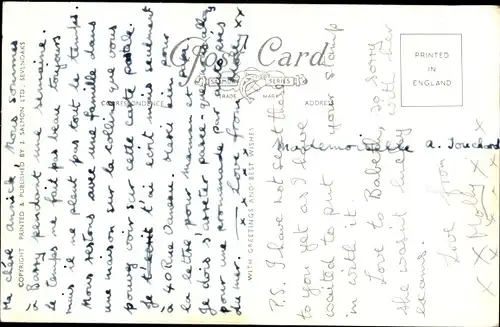 Ma chère Anick, Nous sommes
à Barry pendant une semaine.
Le temps ne fait pas beau toujours
mais il ne pleut pas tout le temps.
Nous restons avec une famille dans
une maison sur la colline que vous
pouvez voir sur cette carte postale.
Je t'ai écrit mais seulement
à 40 Rue Merci aussi pour
la lettre pour maman et papa.
Je dois m'arrêter parce-que nous allons
pour une promenade pur
du mer. Love from
x x x x x x
Post Card
SALMON SERIES
TRADE MARK
CORRESPONDENCE
ADDRESS
PRINTED
IN
ENGLAND
Mademoiselle A. Touchard
COPYRIGHT PRINTED & PUBLISHED BY J. SALMON LTD., SEVENOAKS
WITH GREETINGS AND BEST WISHES
P.S. I have not sent the
to you yet as I have
waited to put your stamp
in with it.
Love to Babeth, so sorry
she wasn't lucky with her
exams.
Love from
x x Molly x x